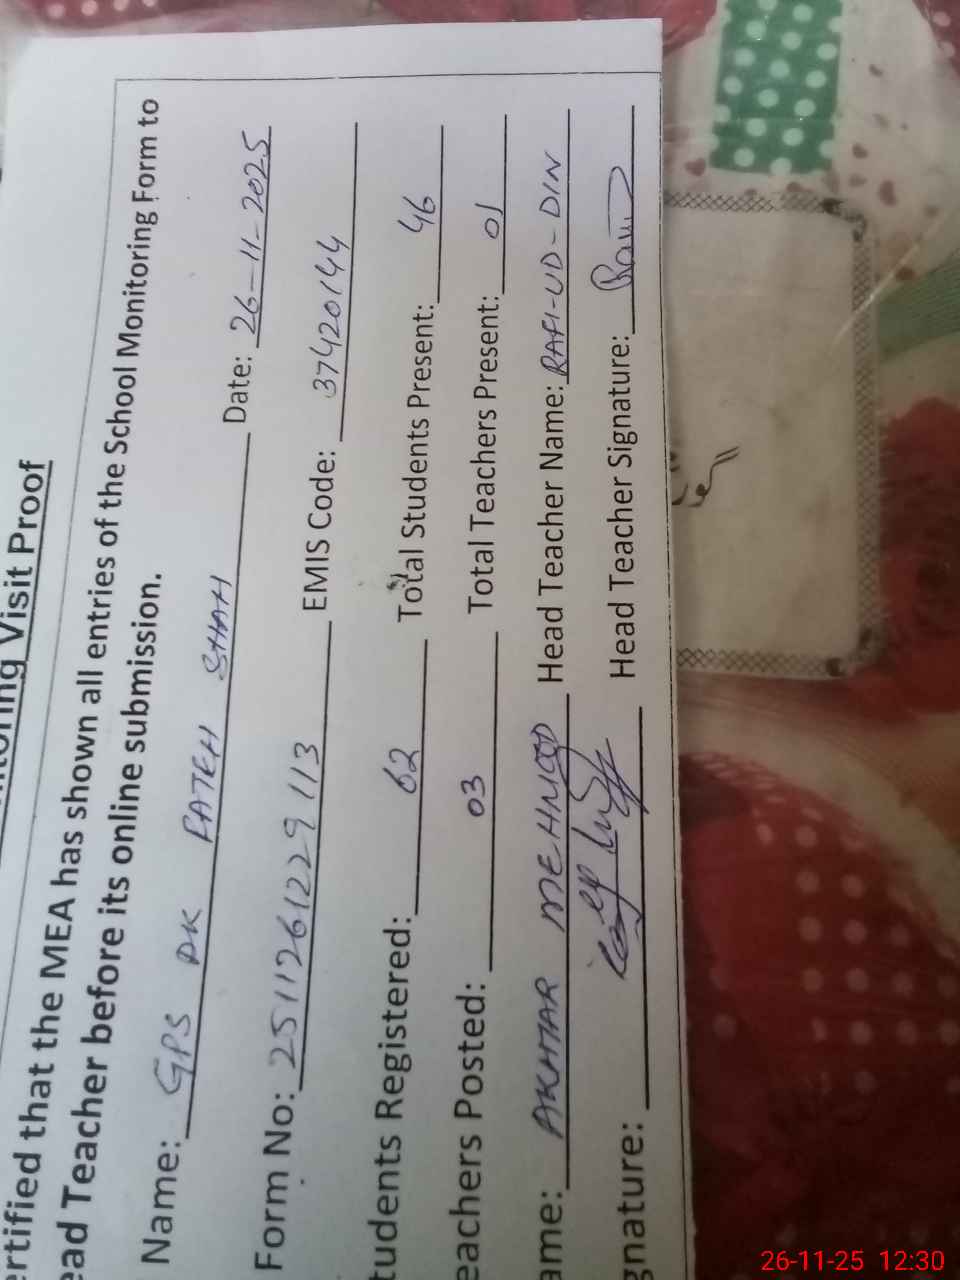 nitoring Visit Proof
ertified that the MEA has shown all entries of the School Monitoring Form to
ead Teacher before its online submission.
Name: GPS DK FATEH SHAH Date: 26-11-2025
Form No: 2511261229113 EMIS Code: 37420144
tudents Registered: 62 Total Students Present: 46
eachers Posted: 03 Total Teachers Present: 01
ame: AKHTAR MEHMOOD Head Teacher Name: RAFI-UD-DIN
gnature: Head Teacher Signature:
26-11-25 12:30